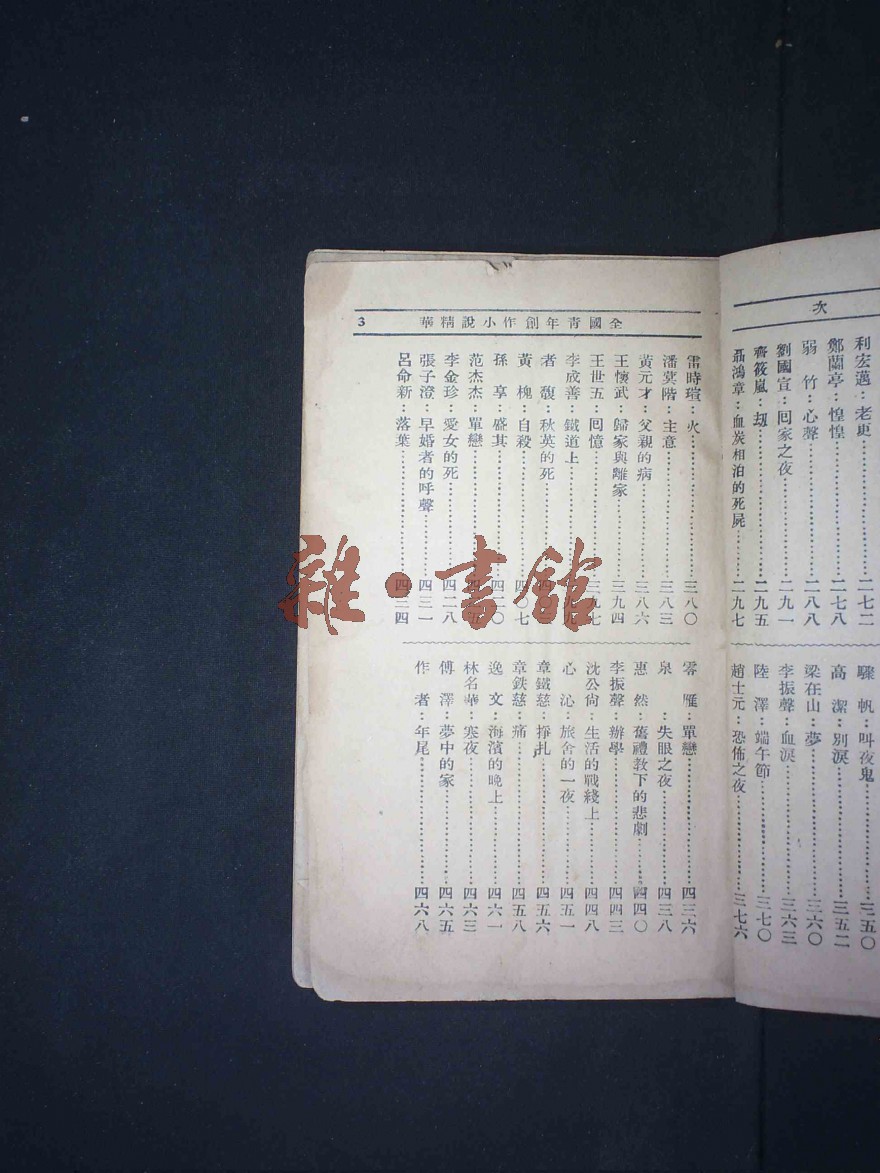 次
利宏邁：老更……二七二
鄭蘭亭：惶惶……二七八
弱竹：心聲……二八八
劉國宣：囘家之夜……二九一
齊筱嵐：刼……二九五
聶鴻章：血炭相泊的死屍……二九七
驟帆：叫夜鬼……三五〇
高潔：別淚……三五二
梁在山：夢……三六〇
李振聲：血淚……三六三
陸澤：端午節……三七〇
趙士元：恐佈之夜……三七六
全國青年創作小說精華
3
雷時瑄：火……三八〇
潘蓂階：主意……三八三
黃元才：父親的病……三八六
王懷武：歸家與離家……三九四
王世五：囘憶……九七
李成善：鐵道上……
者馥：秋英的死……四
黃槐：自殺……四〇七
孫享：盛其……四〇
范杰杰：單戀……四
李金珍：愛女的死……四二八
張子澄：早婚者的呼聲……四三一
呂命新：落葉……四三四
零雁：單戀……四三六
泉：失眼之夜……四三八
惠然：舊禮教下的悲劇……四四〇
李振聲：辦學……四四三
沈公尙：生活的戰綫上……四四八
心沁：旅舍的一夜……四五一
章鐵慈：掙扎……四五六
章鉄慈：痛……四五八
逸文：海濱的晚上……四六一
林名華：寒夜……四六三
傅澤：夢中的家……四六五
作者：年尾……四六八
雜·書館